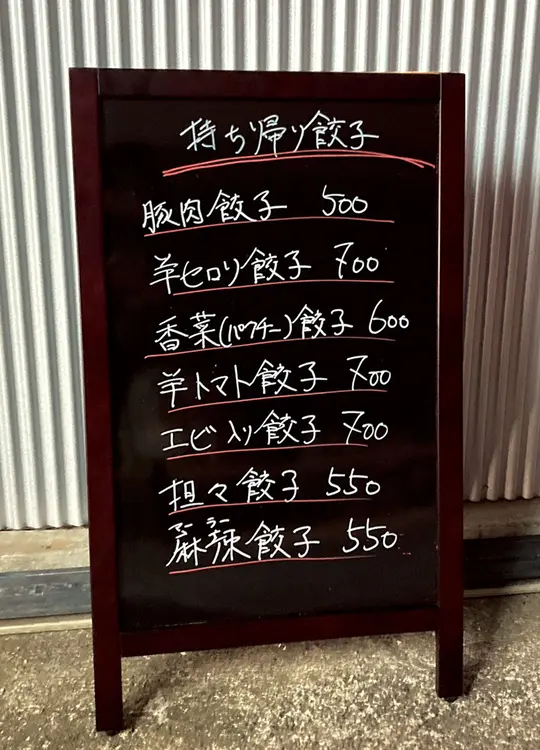 持ち帰り餃子
豚肉餃子 500
羊セロリ餃子 700
香菜(パクチー)餃子 600
羊トマト餃子 700
エビ入り餃子 700
担々餃子 550
麻辣餃子 550
マーラー